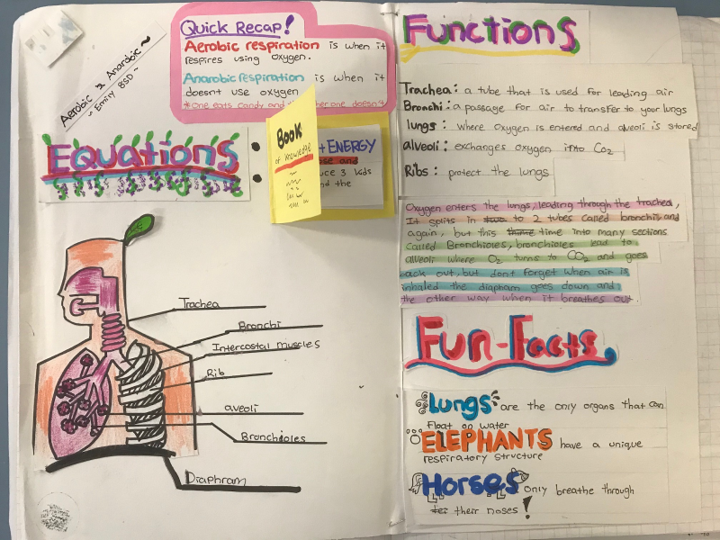 Aerobic & Anarobic ~
~ Emily BSD ~
Quick Recap!
Aerobic respiration is when it
respires using oxygen.
Anarobic respiration is when it
doesn't use oxygen
*One eats candy and other one doesn't
Equations
BOOK
of knowledge
+ ENERGY
and
uce 3 kids
nd the
Trachea
Bronchi
Intercostal muscles
Rib
aveoli
Bronchioles
Diaphram
Functions
Trachea: a tube that is used for leading air
Bronchi: a passage for air to transfer to your lungs
lungs: where oxygen is entered and alveoli is stored
alveoli: exchanges oxygen into Co2
Ribs: protect the lungs
Oxygen enters the lungs, leading through the trachea,
It splits in two to 2 tubes called bronchi and
again, but this time into many sections
called Bronchioles, bronchioles lead to
alveoli where O2 turns to CO2 and goes
ack out, but dont forget when air is
inhaled the diapham goes down and
the other way when it breathes out
Fun-Facts.
Lungs are the only organs that can
float on water
ELEPHANTS have a unique
respiratory structure
Horses only breathe through
their noses!